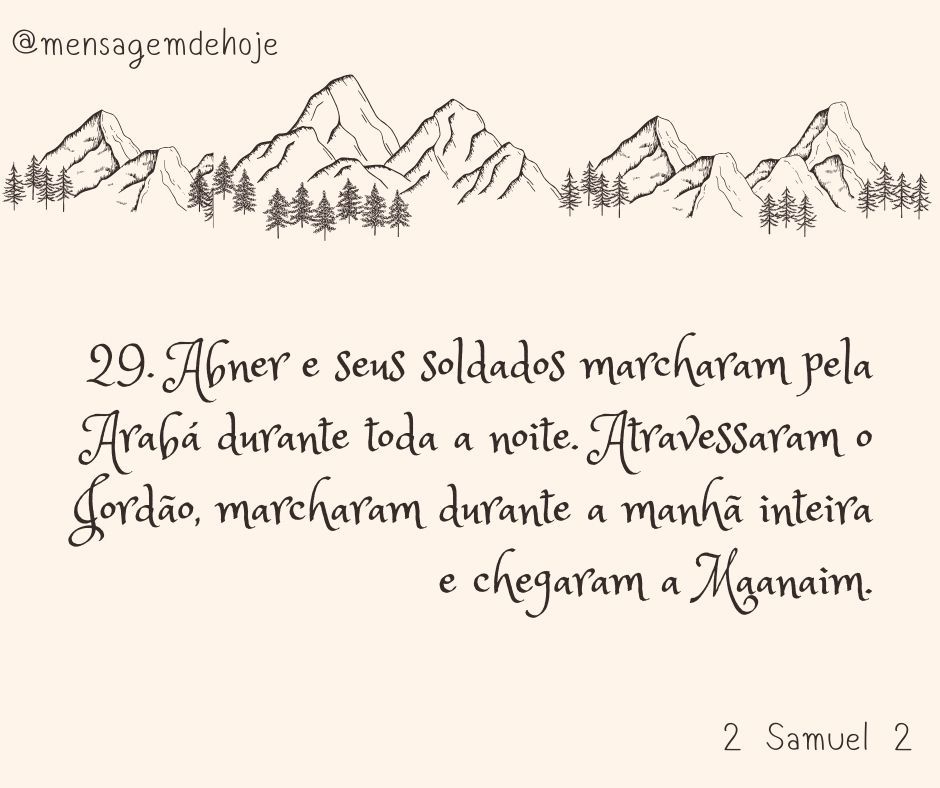 @mensagemdehoje
29. Abner e seus soldados marcharam pela
Arabá durante toda a noite. Atravessaram o
Jordão, marcharam durante a manhã inteira
e chegaram a Maanaim.
2 Samuel 2